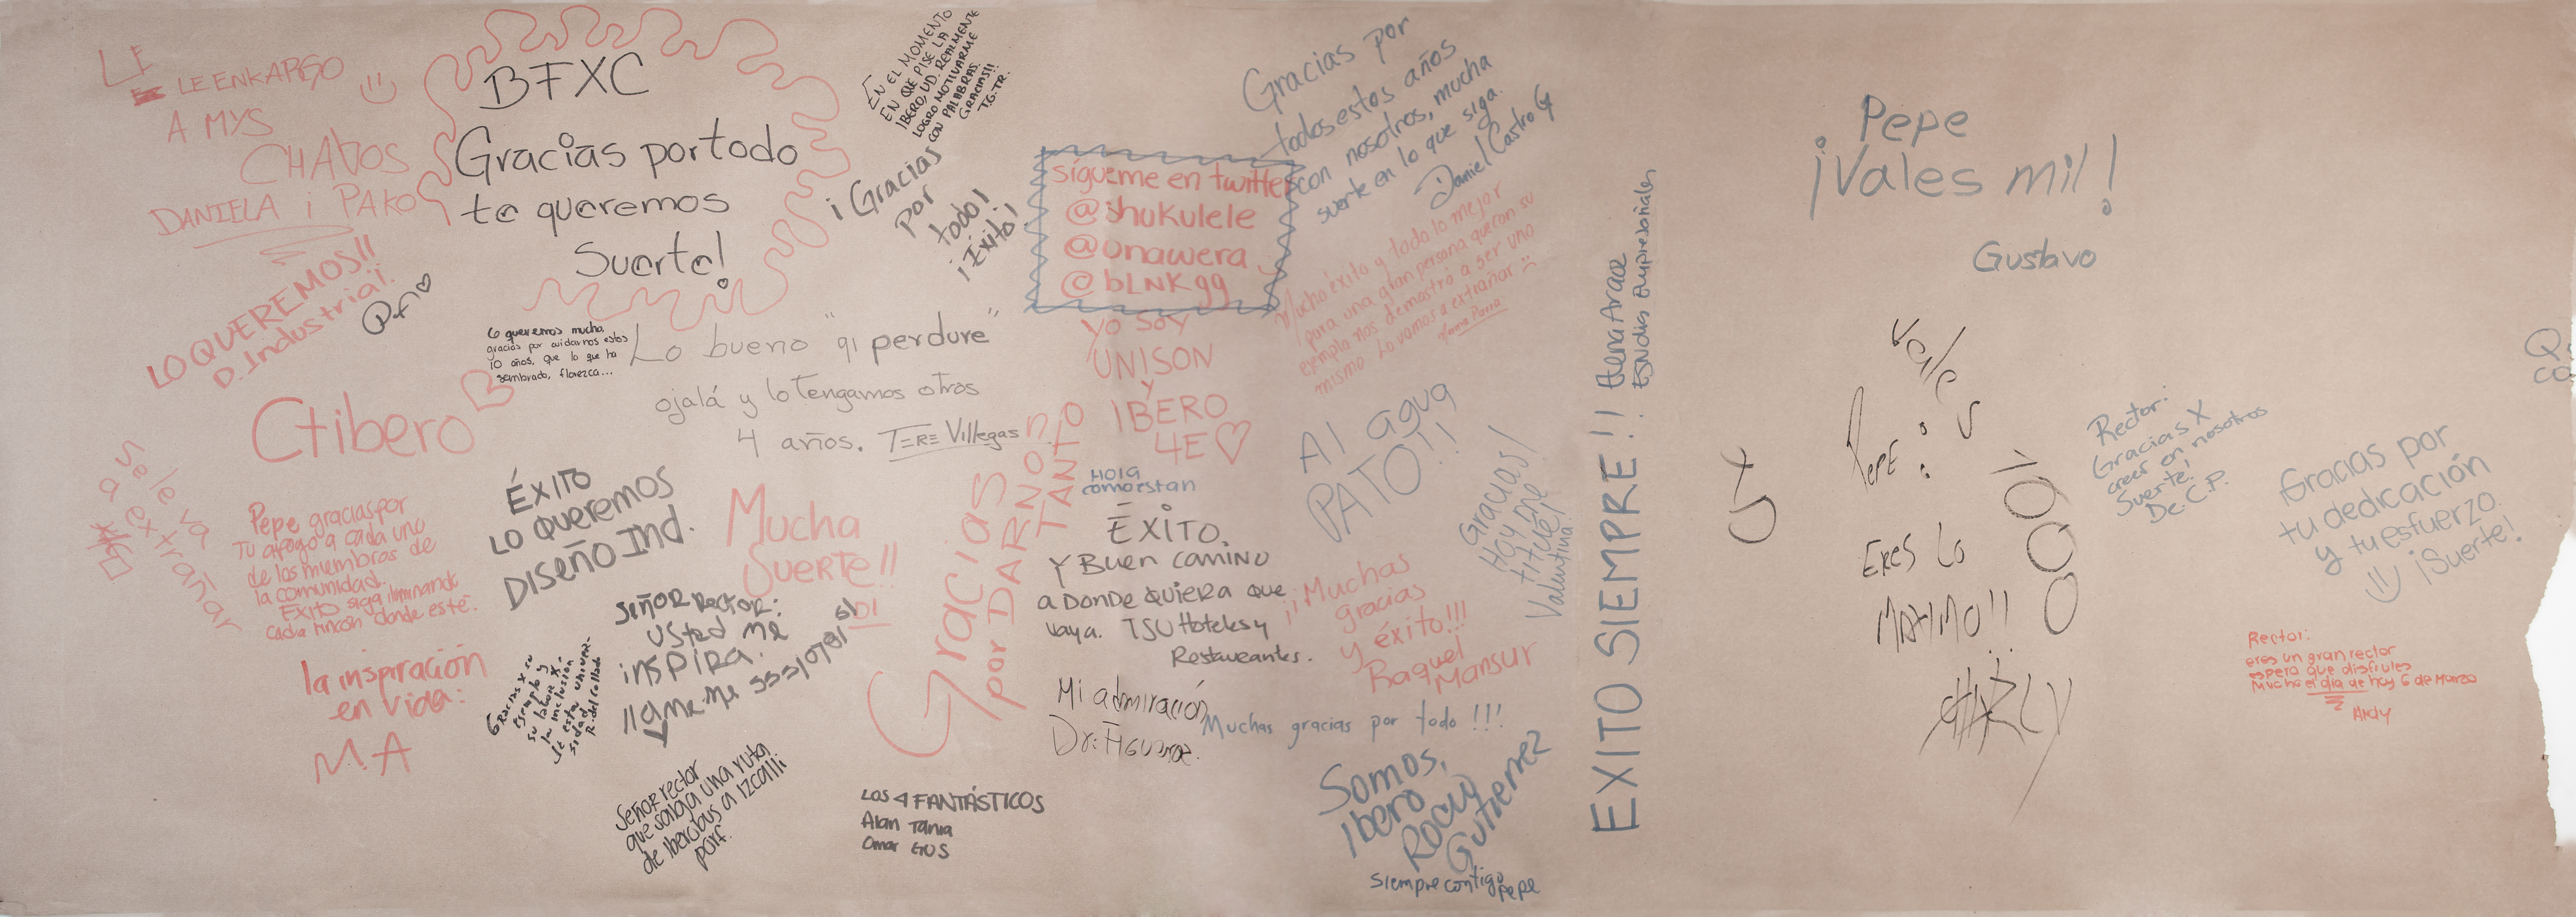 LE
LE ENKARGO
A MYS
CHAVOS
DANIELA i PAKO
LO QUEREMOS!!
D. Industrial.
BFXC
Gracias por todo
te queremos
Suerte!
EN EL MOMENTO
EN QUE PISE LA
IBERO, UD. REALMENTE
LOGRO MOTIVARME
CON PALABRAS.
GRACIAS!!
T.G.TR.
¡Gracias
por
todo!
¡Éxito!
sígueme en twitter
@shukulele
@unawera
@bLNKgg
Yo Soy
UNISON
y
IBERO
4E
Gracias por
todos estos años
con nosotros, mucha
suerte en lo que siga.
Daniel Castro G
Mucho éxito y todo lo mejor
para una gran persona que con su
ejemplo nos demostró a ser uno
mismo. Lo vamos a extrañar
Lo queremos mucho,
gracias por cuidarnos estos
10 años, que lo que ha
sembrado, florezca...
Lo bueno "qi perdure"
ojalá y lo tengamos otros
4 años. TERE Villegas
Ctibero
Se le va
a extrañar
Pepe gracias por
Tu apoyo a cada uno
de los miembros de
la comunidad.
EXITO siga iluminando
cada rincón donde esté.
la inspiración
en vida:
M.A
ÉXITO
LO QUEREMOS
DISEÑO IND.
Mucha
SUERTE!!
DI
SEÑOR RECTOR:
USTED ME
INSPIRA.
llame.me
Gracias x su
ejemplo y
su labor x
la inclusión
de esta univer-
sidad
R. del Collado
Señor rector
que salga una ruta
de Iberobus a Izcalli
porf.
Gracias
por DARNOS
TANTO
LOS 4 FANTÁSTICOS
Alan Tania
Omar GUS
HOLA
como estan
ÉXITO.
Y Buen camino
a DONDE QUIERA que
vaya. TSU Hoteles y
Restaurantes.
Mi admiración
Dr. Figueroa.
Al agua
PATO!!
Gracias!
Hoy me
titulé!
Valentina.
¡¡Muchas
gracias
y éxito!!!
Raquel
Mansur
Muchas gracias por todo !!!
Somos,
Ibero
Rocío
Gutierrez
siempre contigo
PePe
EXITO SIEMPRE!! Elena Araoz
Estudios Empresariales
Pepe
¡Vales mil!
Gustavo
Vales
1000
PEPE:
ERES LO
MAXIMO!!
Rector:
Gracias X
creer en nosotros
Suerte!
De C.P.
¡Gracias por
tu dedicación
y tu esfuerzo.
¡Suerte!
Rector:
eres un gran rector
espero que disfrutes
Mucho el día de hoy 6 de Marzo
Andy